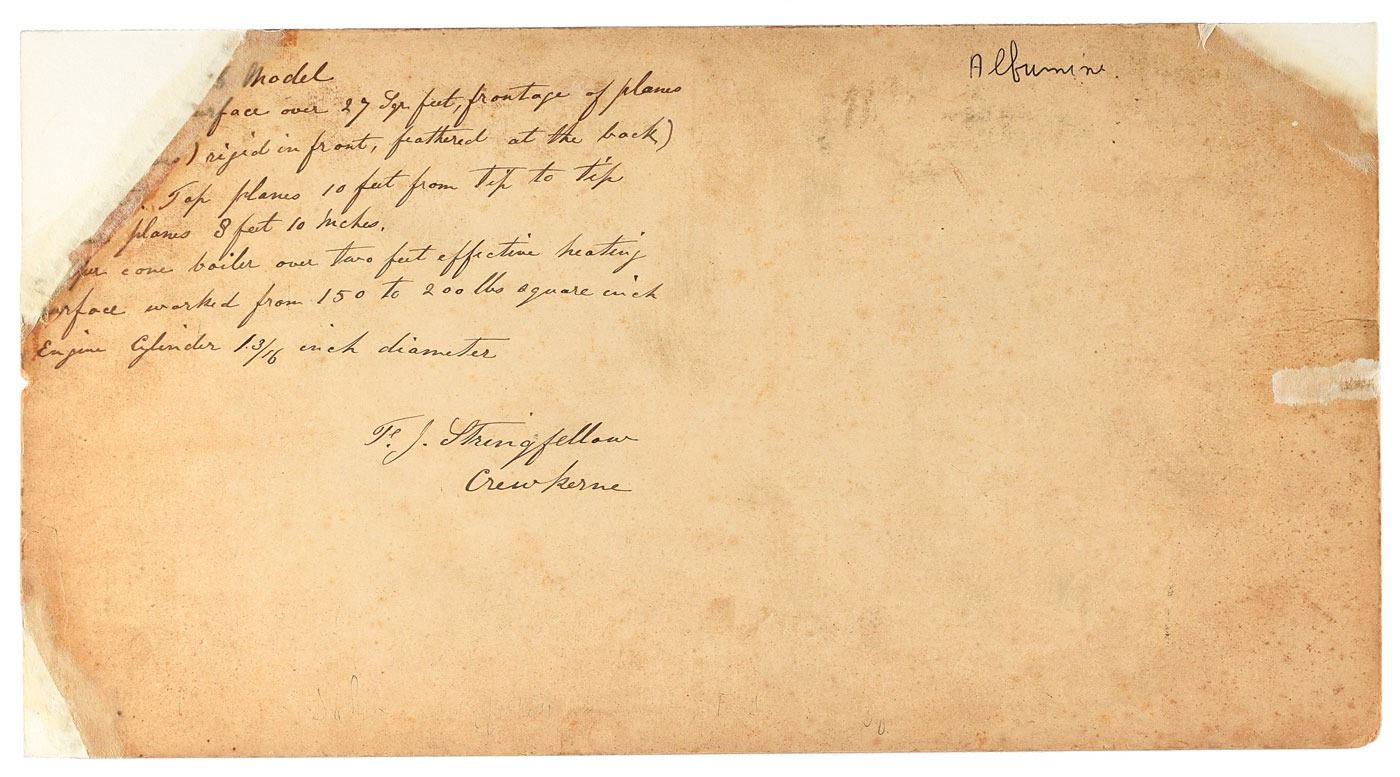 Model
Albumine.
rface over 27 Sqr feet, frontage of planes
) rigid in front, feathered at the back)
. Top planes 10 feet from tip to tip
planes 8 feet 10 Inches.
per cone boiler over two feet effective heating
urface worked from 150 to 200 lbs square inch
Engine Cylinder 1.3/16 inch diameter
J. Stringfellow
Crewkerne